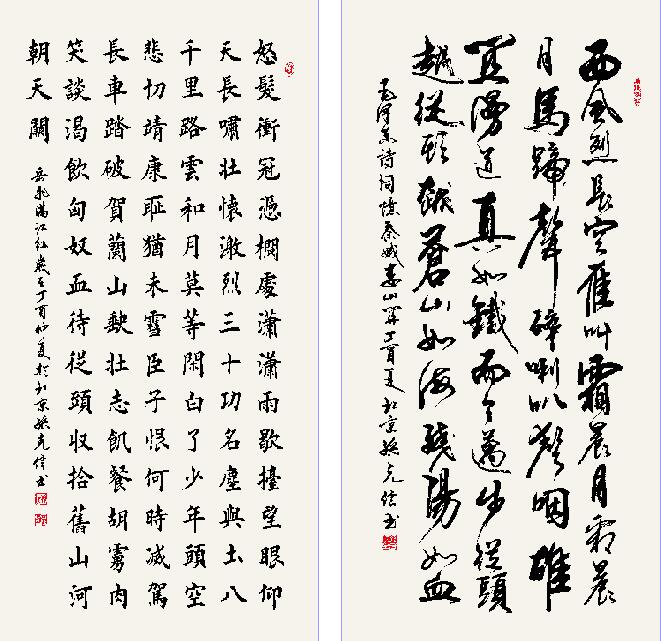 西風烈長空雁叫霜晨月霜晨
月馬蹄聲碎喇叭聲咽雄
關漫道真如鐵而今邁步從頭
越從頭越蒼山如海殘陽如血
毛澤東詩詞憶秦娥婁山關丁酉夏北京克書
怒髮衝冠憑欄處瀟瀟雨歇擡望眼仰
天長嘯壯懷激烈三十功名塵與土八
千里路雲和月莫等閑白了少年頭空
悲切靖康恥猶未雪臣子恨何時滅駕
長車踏破賀蘭山缺壯志飢餐胡虜肉
笑談渴飲匈奴血待從頭收拾舊山河
朝天闕
岳飛滿江紅歲在丁酉仲夏於北京克書